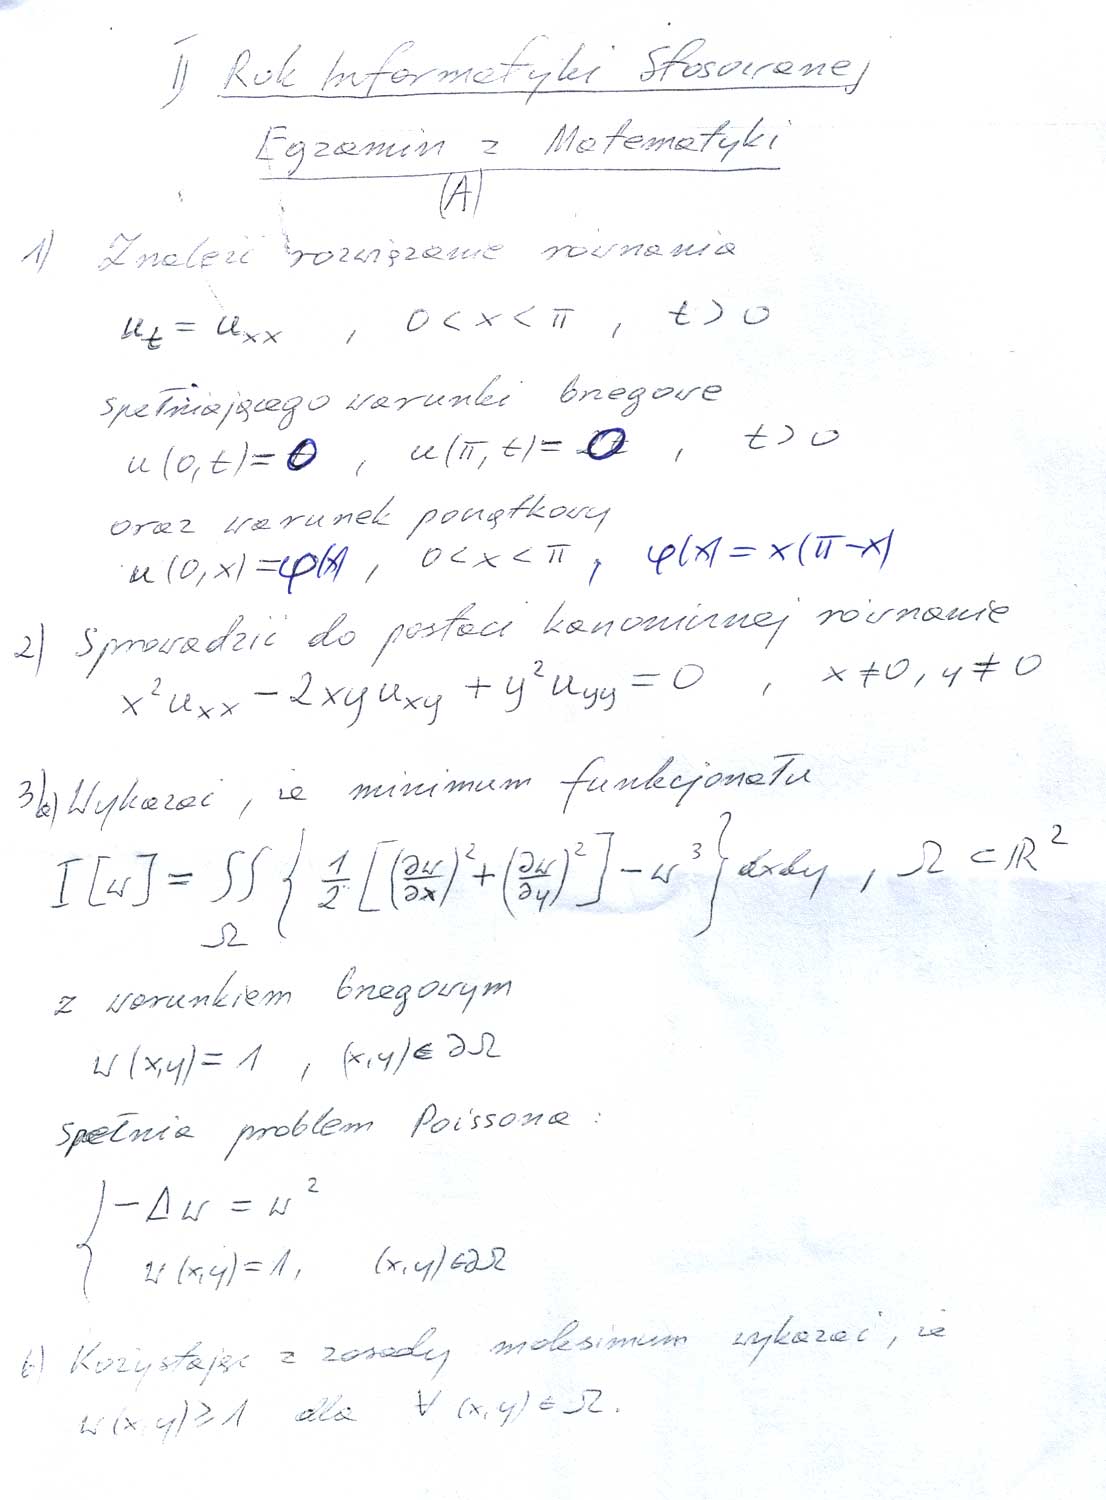 I) Rok Informatyki Stosowanej
Egzamin z Matematyki
(A)
1) Znaleźć rozwiązanie równania
u_t = u_xx , 0 < x < π , t > 0
spełniającego warunki brzegowe
u(0,t) = 0 , u(π,t) = 0 , t > 0
oraz warunek początkowy
u(0,x) = φ(x) , 0 < x < π , φ(x) = x(π-x)
2) Sprowadzić do postaci kanonicznej równanie
x² u_xx - 2xy u_xy + y² u_yy = 0 , x ≠ 0, y ≠ 0
3) a) Wykazać, że minimum funkcjonału
I[w] = ∬_Ω { 1/2 [ (∂w/∂x)² + (∂w/∂y)² ] - w³ } dxdy , Ω ⊂ ℝ²
z warunkiem brzegowym
w(x,y) = 1 , (x,y) ∈ ∂Ω
spełnia problem Poissona:
{ -Δw = w²
w(x,y) = 1, (x,y) ∈ ∂Ω
b) Kozystając z zasady maksimum wykazać, że
w(x,y) ≥ 1 dla ∀ (x,y) ∈ Ω.